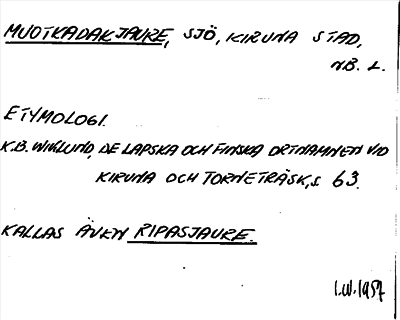 MUOTKADAKJAURE, SJÖ, KIRUNA STAD,
NB. L.
ETYMOLOGI.
K.B. WIKLUND, DE LAPSKA OCH FINSKA ORTNAMNEN VID
KIRUNA OCH TORNETRÄSK, S. 63.
KALLAS ÄVEN RIPASJAURE.
I.W. 1957